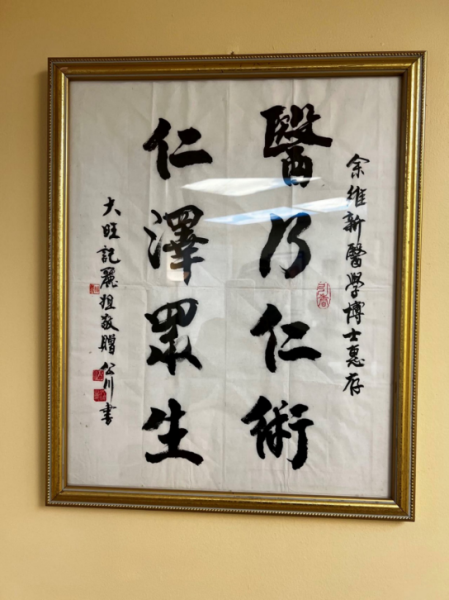 余維新醫學博士惠存
醫乃仁術
仁澤眾生
大旺記麗姐敬贈 公川書